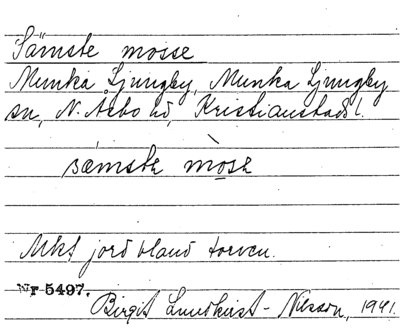 Sämste mosse
Munka Ljungby, Munka Ljungby
sn, N. Åsbo hd, Kristianstads l.
sæ̀mste mòse
Mkt jord bland torven.
Nr 5497.
Birgit Lundkvist-Nilsson, 1941.